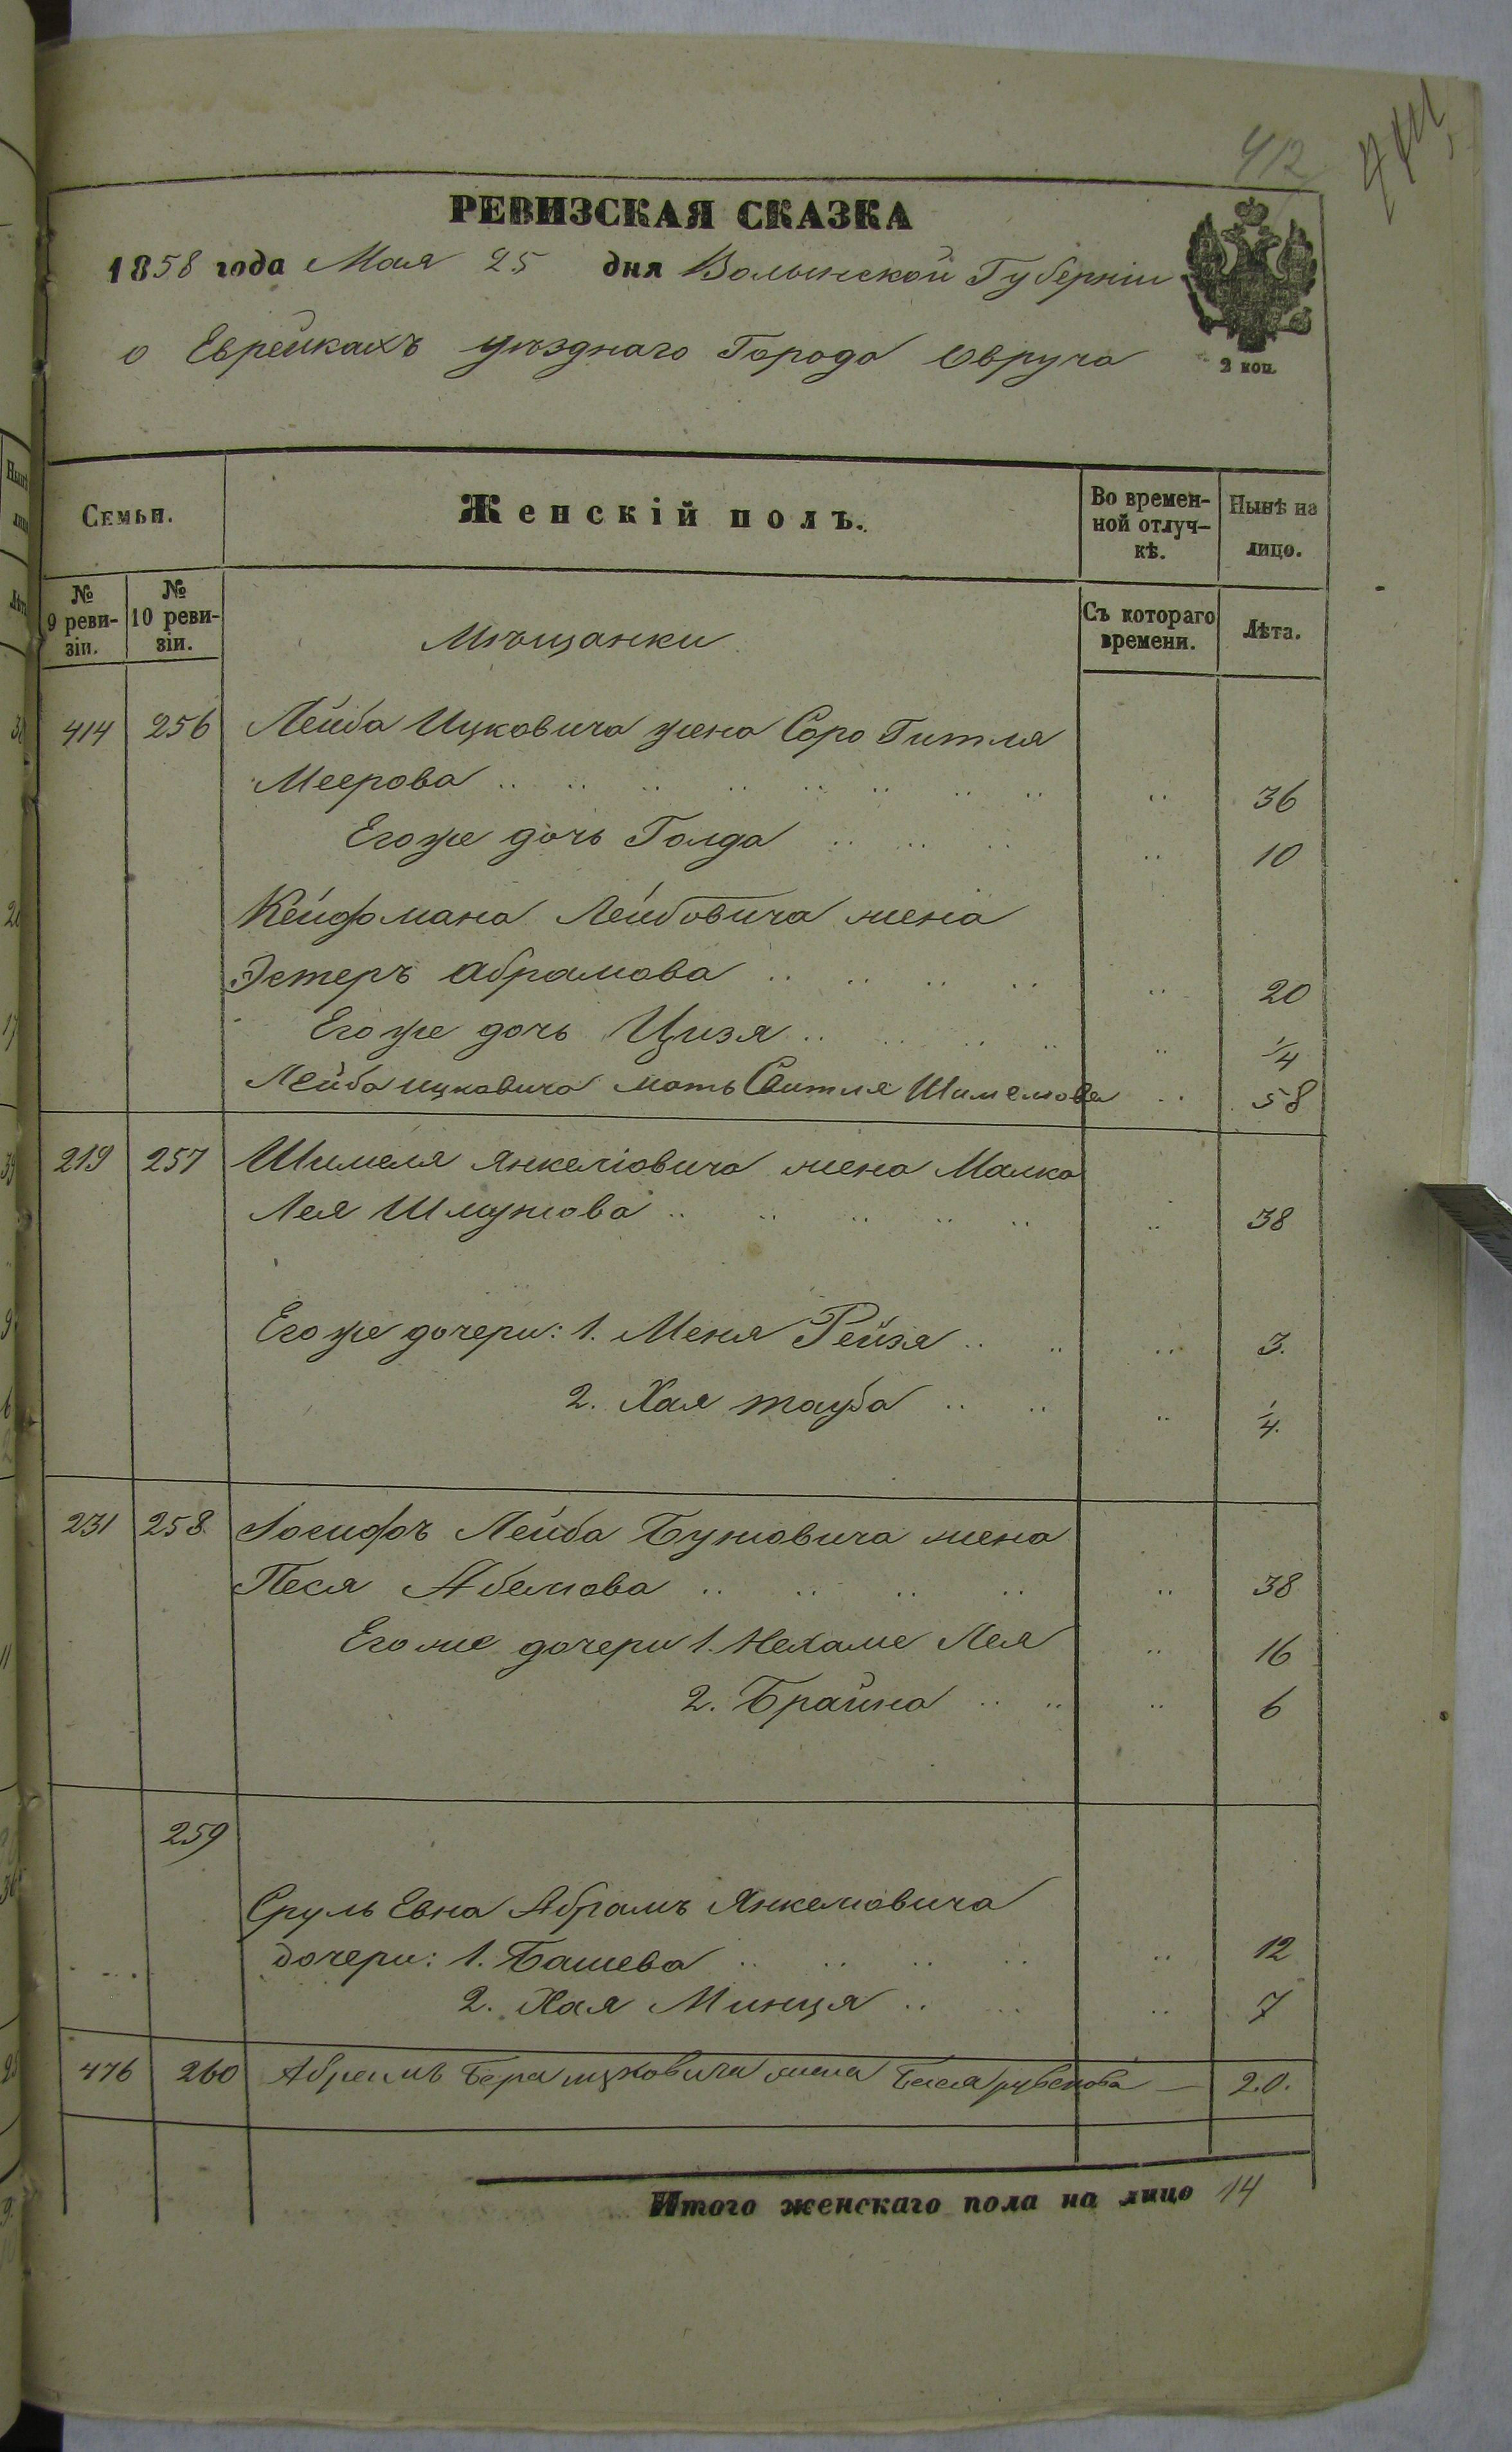 412
РЕВИЗСКАЯ СКАЗКА
1858 года Мая 25 дня Волынской Губерніи
о Еврейкахъ уѣзднаго Города Овруча
2 коп.
Семьи. Женскій полъ. Во времен- Нынѣ на
ной отлуч- лицо.
кѣ.
№ № Съ котораго Лѣта.
9 реви- 10 реви- времени.
зіи. зіи.
Мѣщанки
414 256 Лейба Ицковича жена Соро Гитля
Меерова .. .. .. .. .. .. .. .. .. 36
Егоже дочь Голда .. .. .. .. 10
Кейфмана Лейбовича жена
Эстеръ Абрамова .. .. .. .. .. 20
Егоже дочь Цизя .. .. .. .. .. 1/4
Лейба ицковича мать Свитля Шимелова .. 58
219 257 Шимеля Янкеліовича жена Малка
Лея Шмунова .. .. .. .. .. .. 38
Егоже дочери: 1. Меня Рейзя .. .. .. 3.
2. Хая тауба .. .. .. 1/4.
231 258. Іосифъ Лейба Буновича жена
Песя Абелюва .. .. .. .. .. 38
Егоже дочери 1. Нехаме Лея .. 16
2. Брайна .. .. .. 6
259
Сруль Евна Абрамъ Янкелювича
дочери: 1. Башева .. .. .. .. .. 12
2. Хая Минця .. .. .. 7
476 260 Абраимъ Бера ицковича жена рувенова — 20.
Итого женскаго пола на лицо 14